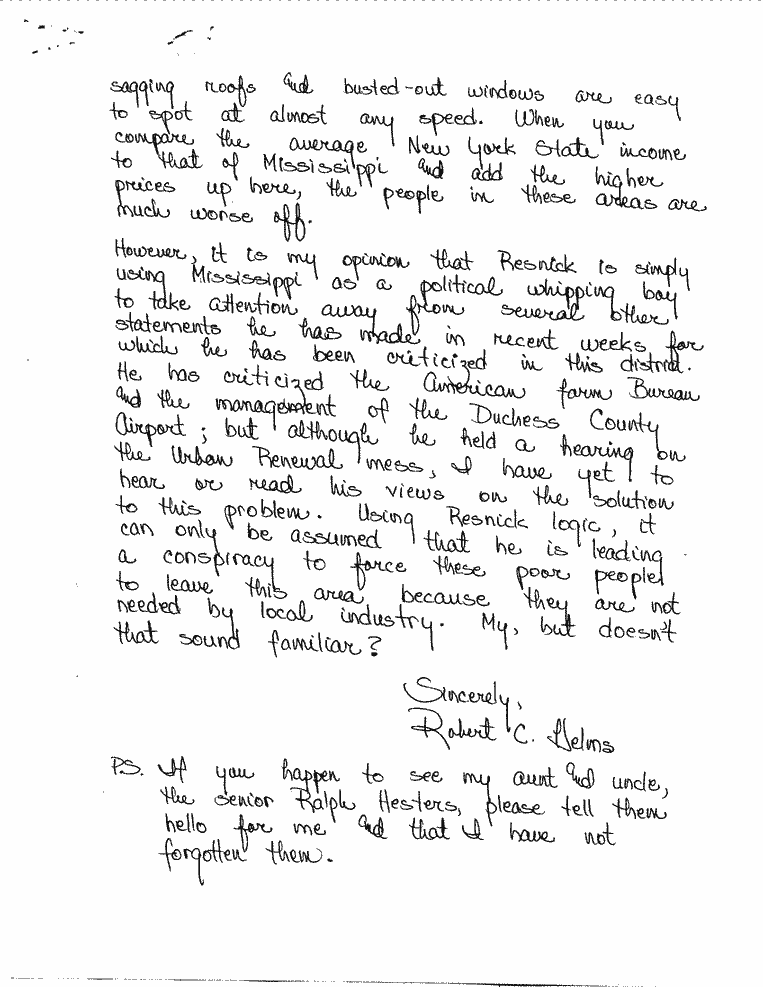 sagging roofs and busted-out windows are easy
to spot at almost any speed. When you
compare the average New York State income
to that of Mississippi and add the higher
prices up here, the people in these areas are
much worse off.
However, it is my opinion that Resnick is simply
using Mississippi as a political whipping boy
to take attention away from several other
statements he has made in recent weeks for
which he has been criticized in this district.
He has criticized the American Farm Bureau
and the management of the Duchess County
Airport; but although he held a hearing on
the Urban Renewal mess, I have yet to
hear or read his views on the solution
to this problem. Using Resnick logic, it
can only be assumed that he is leading
a conspiracy to force these poor people
to leave this area because they are not
needed by local industry. My, but doesn't
that sound familiar?
Sincerely,
Robert C. Helms
P.S. If you happen to see my aunt and uncle,
the senior Ralph Hesters, please tell them
hello for me and that I have not
forgotten them.